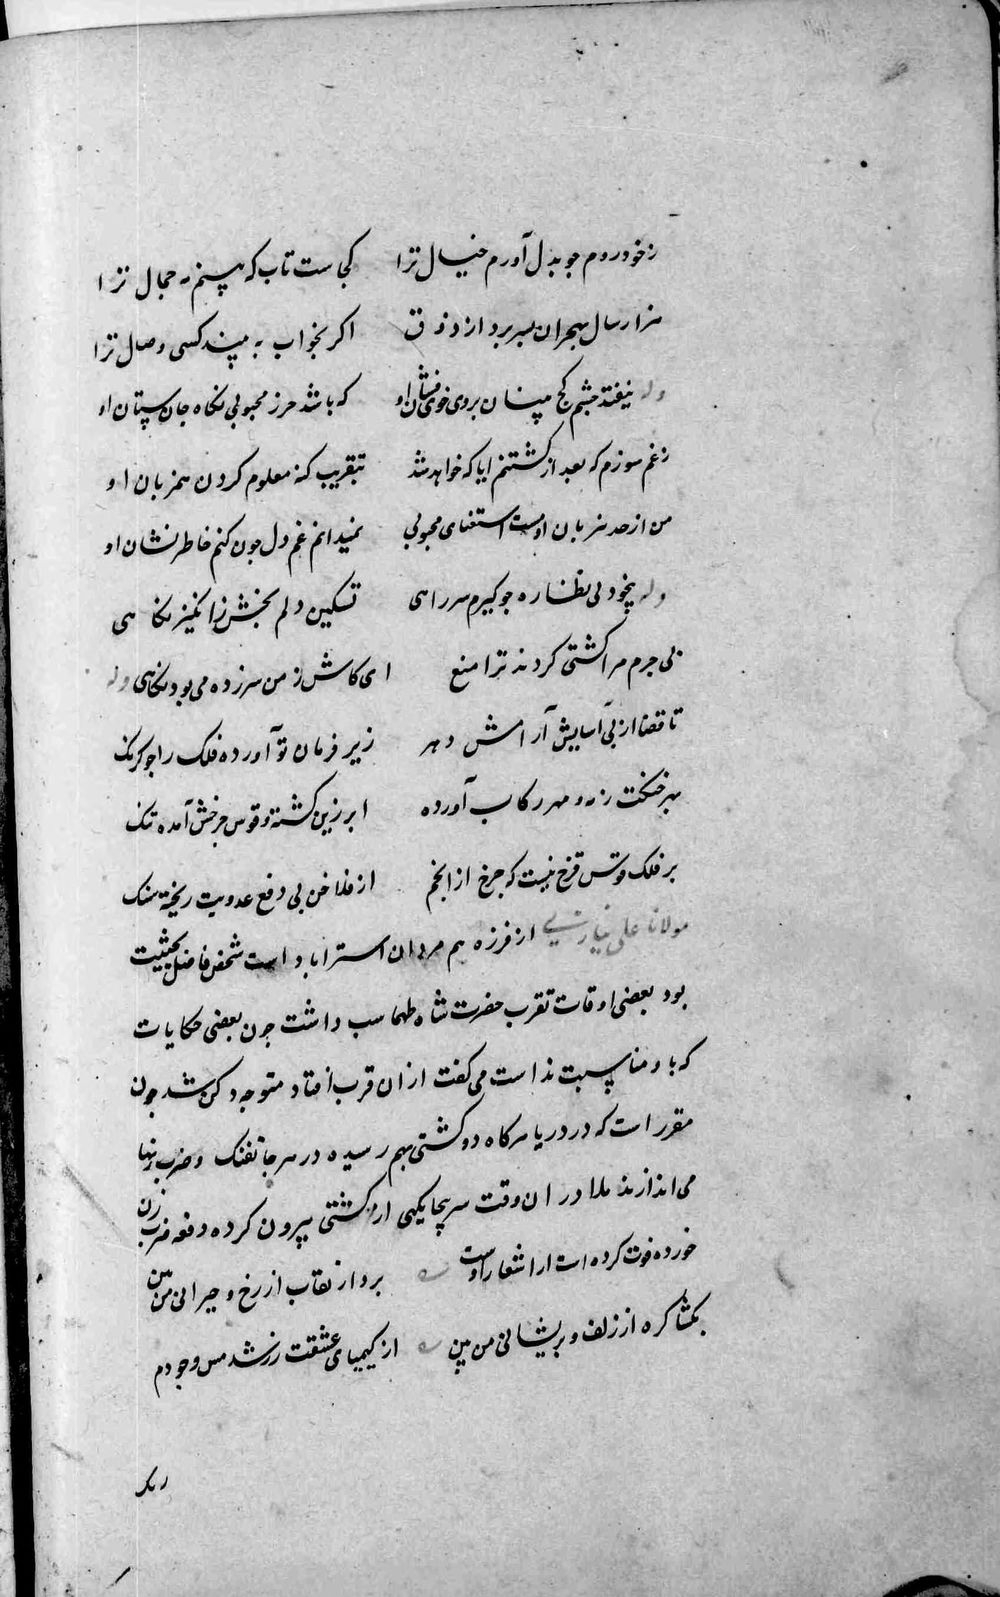 زخود روم جو بدل آورم خیال ترا کجاست تاب که بینم مه جمال ترا
هزار سال بهجران بسر برد از ذوق اکر بخواب به بیند کسی وصال ترا
وله نیفتد چشم کج بینان بروی خوی فشان او که باشد حرز محبوبی نکاه جان ستان او
زغم سوزم که بعد از کشتنم ایا که خواهد شد بتقریب کنه معلوم کردن همزبان او
من از حد بی زبان او مست استغنای محبوبی نمیدانم غم دل جون کنم خاطر نشان او
وله بیخود بی نظاره جو کیرم سر راهی تسکین دلم بخش زانکیز نکاهی
بی جرم مرا کشتی کردند ترا منع ای کاش ز من سر زده می بود نکاهی وله
تا قضا از پی آسایش آرامش دهر زیر فرمان تو آورده فلک را جو کرنک
بهر خنکت زمه و مهر رکاب آورده ابر زین کشته و قوس فزخش آمده تنک
بر فلک قوس قزح نیست که جرخ از انجم از فلاخن پی دفع عدویت ریخته سنک
مولانا علی نیازی از فرزه هم مردان استراباد است شخص فاضل بحیثیت
بود بعضی اوقات تقرب حضرت شاه طهماسب داشت جون بعضی حکایات
که با و مناسبت نداست می کفت ازان قرب افتاد متوجه دکن شد جون
مقرر است که در دریا هرکاه دو کشتی بهم رسیده در هر جا تفنک و ضرب زنها
می اندازند ملا در ان وقت سر بجا یکهی از کشتی بیرون کرده دفعه ضرب زن
خورده فوت کرده است از اشعار اوست بردار نقاب از رخ و حیرانی من بین
بکشا کره از زلف و پریشانی من بین از کیمیای عشقت زر شد مس وجودم
رنک